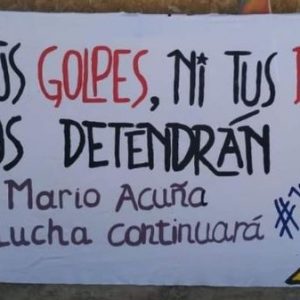 US GOLPES, NI TUS
OS DETENDRÁN
Mario Acuña
Lucha continuará #